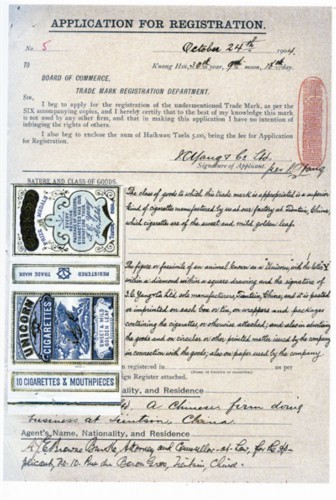 APPLICATION FOR REGISTRATION.
No 5
October 24th 1904
TO
Kuang Hsü, 30th year, 9th moon, day.
BOARD OF COMMERCE,
TRADE MARK REGISTRATION DEPARTMENT.
SIR,
I beg to apply for the registration of the undermentioned Trade Mark, as per the
SIX accompanying copies, and I hereby certify that to the best of my knowledge this mark
is not used by any other firm, and that in making this application I have no intention of
infringing the rights of others.
I also beg to enclose the sum of Haikwan Taels 5.00, being the fee for Application
for Registration.
& Co. Ltd.
Signature of Applicant.
NATURE AND CLASS OF GOODS.
The class of goods to which this trade mark is appropriated is a superior
kind of cigarettes manufactured by us at our factory at Tientsin, China,
which cigarettes are of the sweet and mild golden leaf.
REGISTERED
TRADE MARK
UNICORN
CIGARETTES
SWEET & MILD
GOLDEN LEAF
10 CIGARETTES & MOUTHPIECES
The figure or facsimile of an animal known as a Unicorn, with the letters
within a diamond within a square drawing and the signature of
Ltd. manufacturers, Tientsin, China, and it is pasted
or imprinted on each box or tin, or wrappers and packages
containing the cigarettes, or otherwise attached; and also in advertising
the goods and on circulars or other printed matter issued by the company
in connection with the goods; also on paper used by the company
registered in as per
Register attached.
Nationality, and Residence
A Chinese firm doing
business at Tientsin, China
Agent's Name, Nationality, and Residence
Attorney and Counsellor-at-Law, for the Ap-
plicant, Tientsin, China.